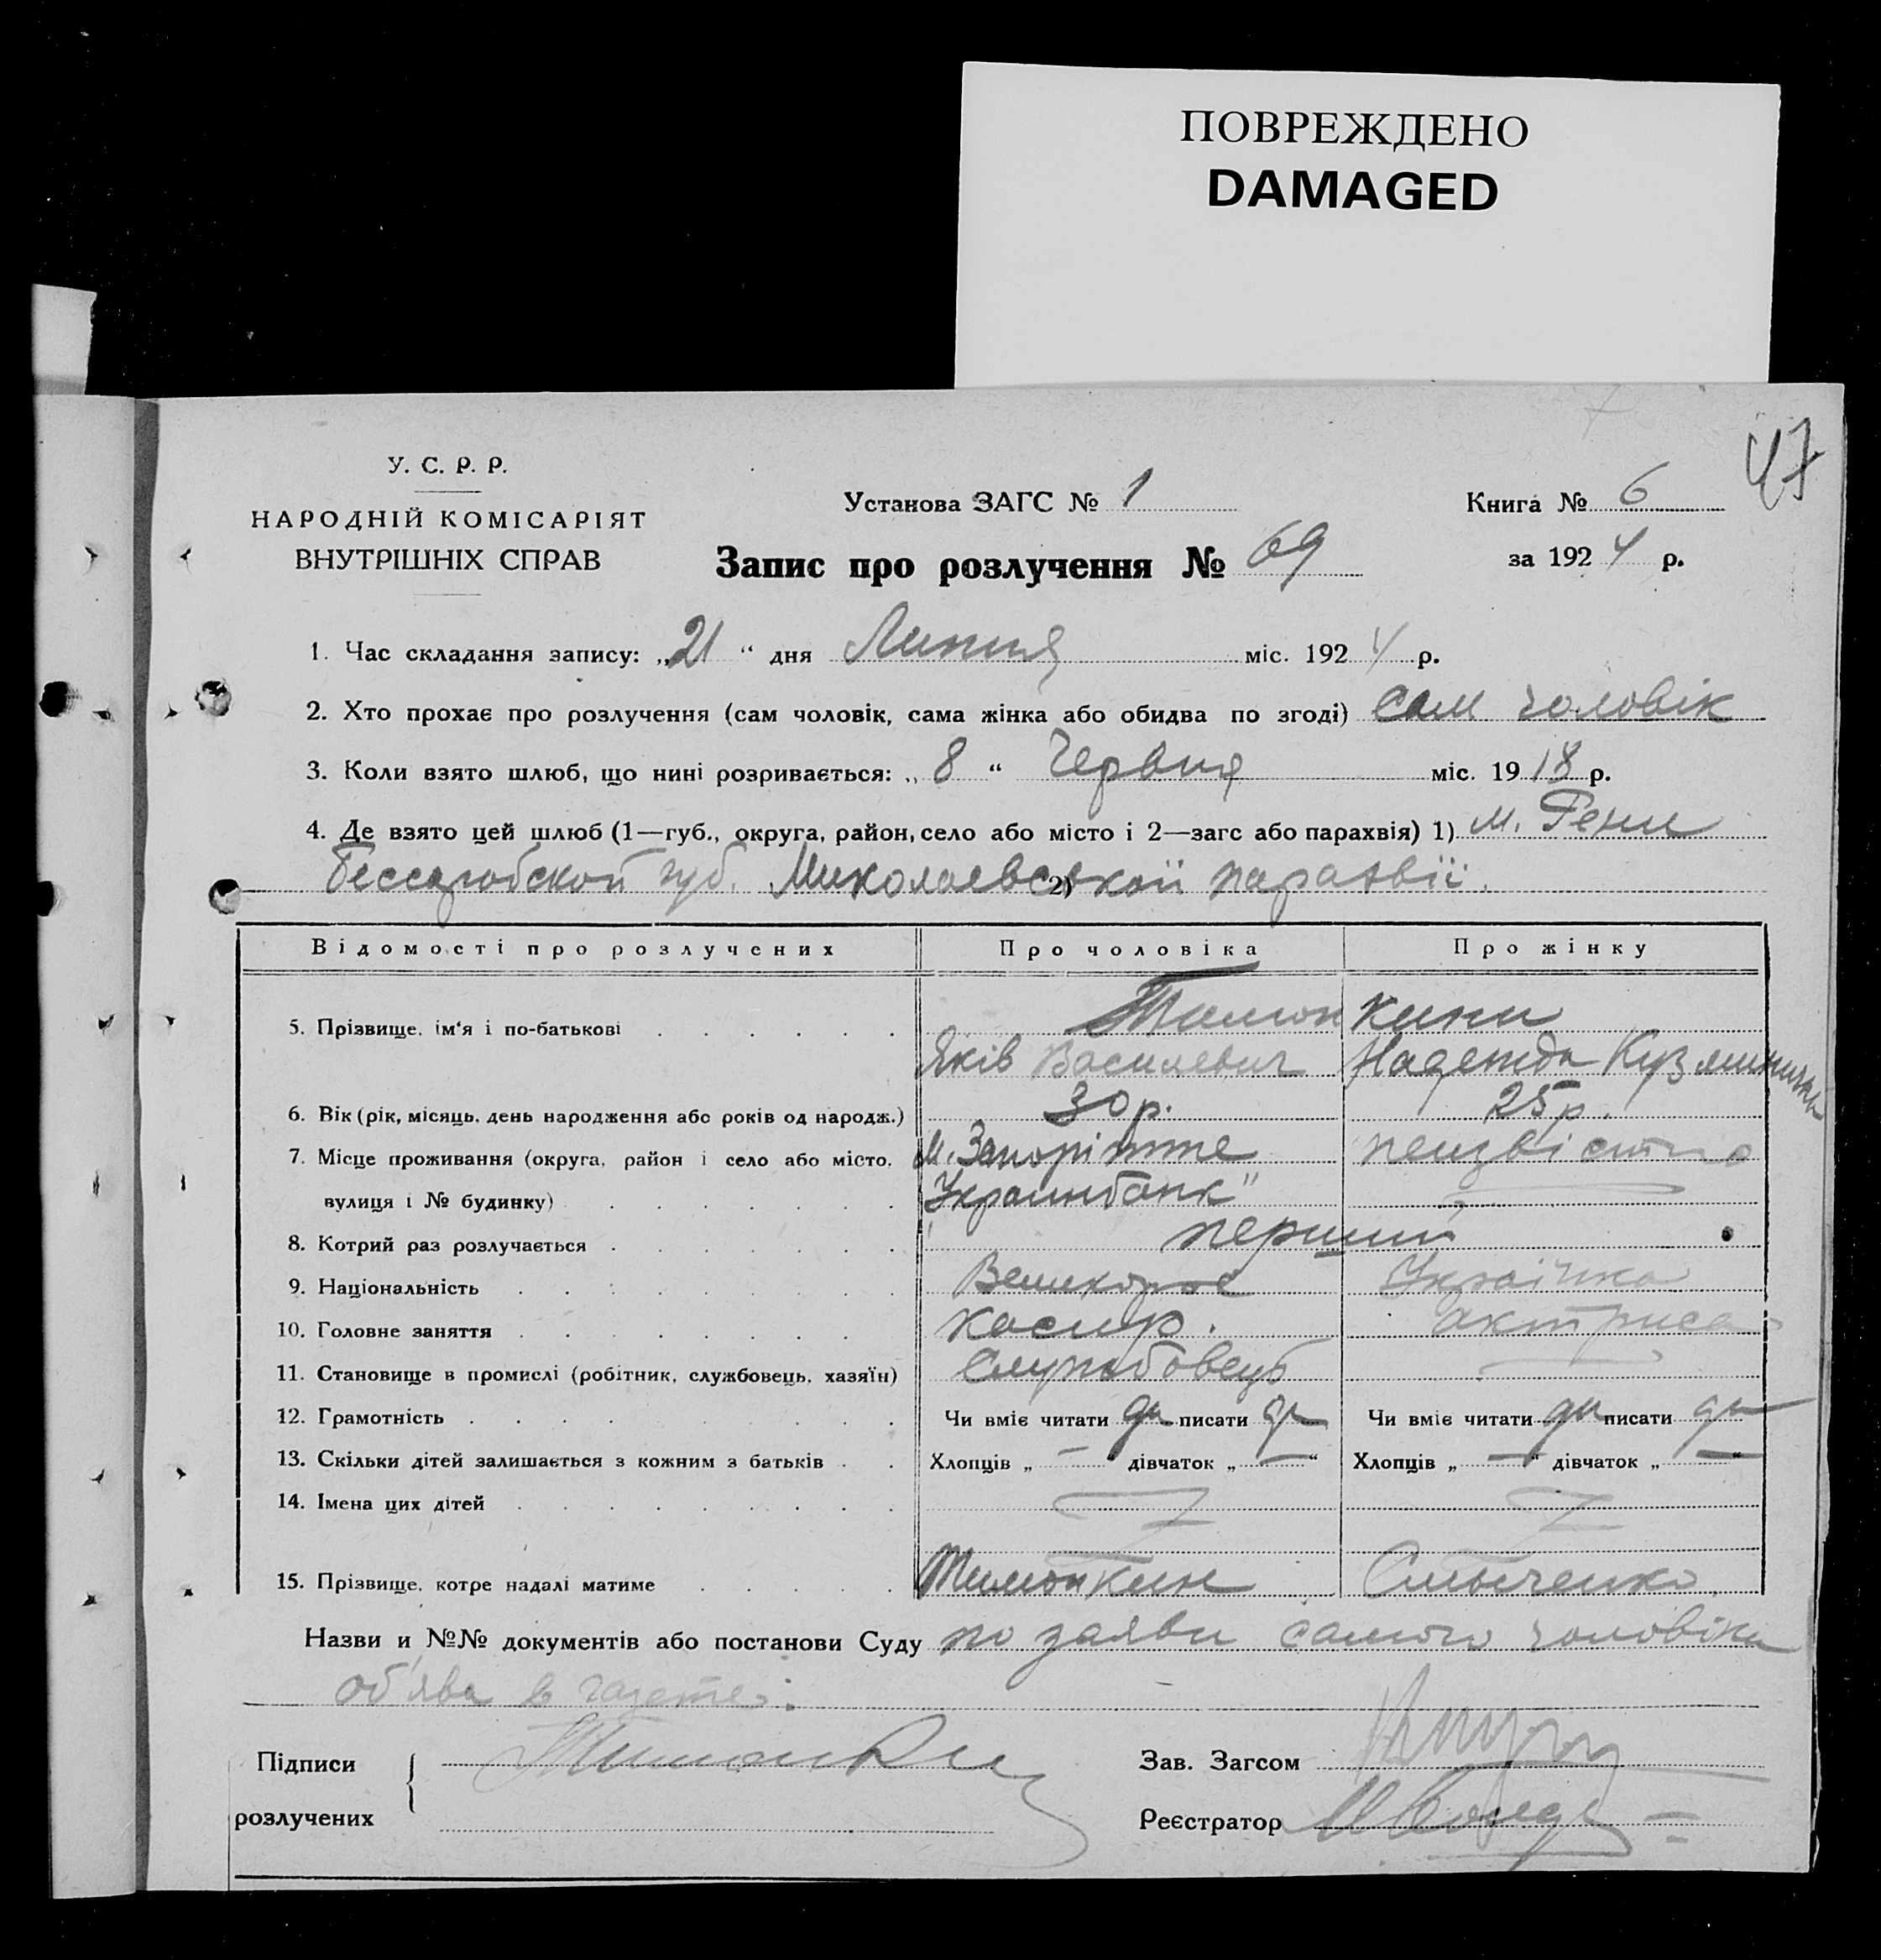 ПОВРЕЖДЕНО
DAMAGED
47
У. С. Р. Р.
НАРОДНІЙ КОМІСАРІЯТ
ВНУТРІШНІХ СПРАВ
Установа ЗАГС № 1
Книга № 6
Запис про розлучення № 69
за 1924 р.
1. Час складання запису: „21“ дня Липня міс. 1924 р.
2. Хто прохає про розлучення (сам чоловік, сама жінка або обидва по згоді) сам чоловік
3. Коли взято шлюб, що нині розривається: „8“ Червня міс. 1918 р.
4. Де взято цей шлюб (1—губ., округа, район, село або місто і 2—загс або парахвія) 1) м. Рени
Бессарабской губ. Миколаевськой 2) парахвії.
Відомості про розлучених Про чоловіка Про жінку
5. Прізвище, ім'я і по-батькові Тимонкини
Яків Василевич Надежда Кузминична
6. Вік (рік, місяць, день народження або років од народж.) 30 р. 25 р.
7. Місце проживання (округа, район і село або місто, м. Запоріжже неизвістно
вулиця і № будинку) „Украинбанк"
8. Котрий раз розлучається перший
9. Національність Великорос Українка
10. Головне заняття касир. актриса
11. Становище в промислі (робітник, службовець, хазяїн) Службовець —
12. Грамотність Чи вміє читати да писати да Чи вміє читати да писати да
13. Скільки дітей залишається з кожним з батьків Хлопців „—“ дівчаток „—“ Хлопців „—“ дівчаток „—“
14. Імена цих дітей
15. Прізвище, котре надалі матиме Тимонкин
Назви и №№ документів або постанови Суду по заяви самого чоловіка
об'ява в газете.
Підписи Тимонкин Зав. Загсом
розлучених Реєстратор